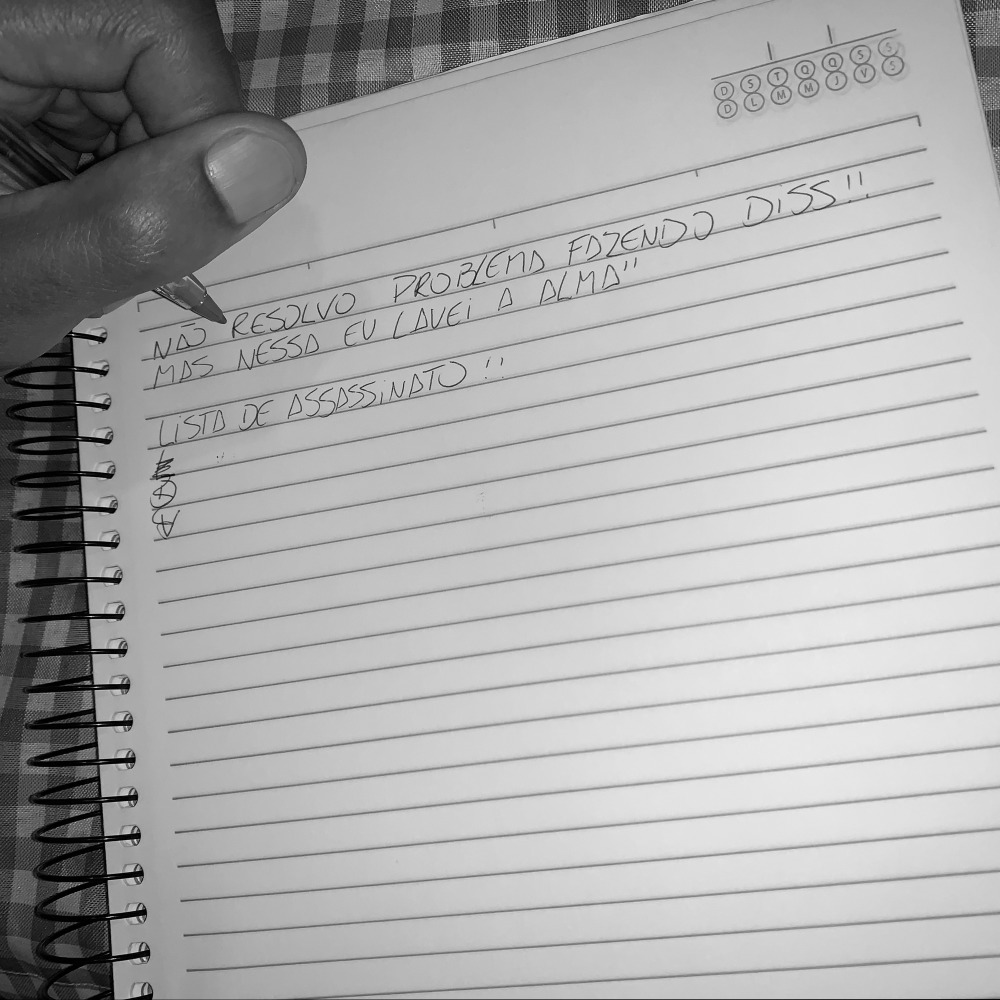 D S T Q Q S S
D L M M J V S
NÃO RESOLVO PROBLEMA FAZENDO DISS!!
MAS NESSA EU LAVEI A ALMA"
LISTA DE ASSASSINATO !!